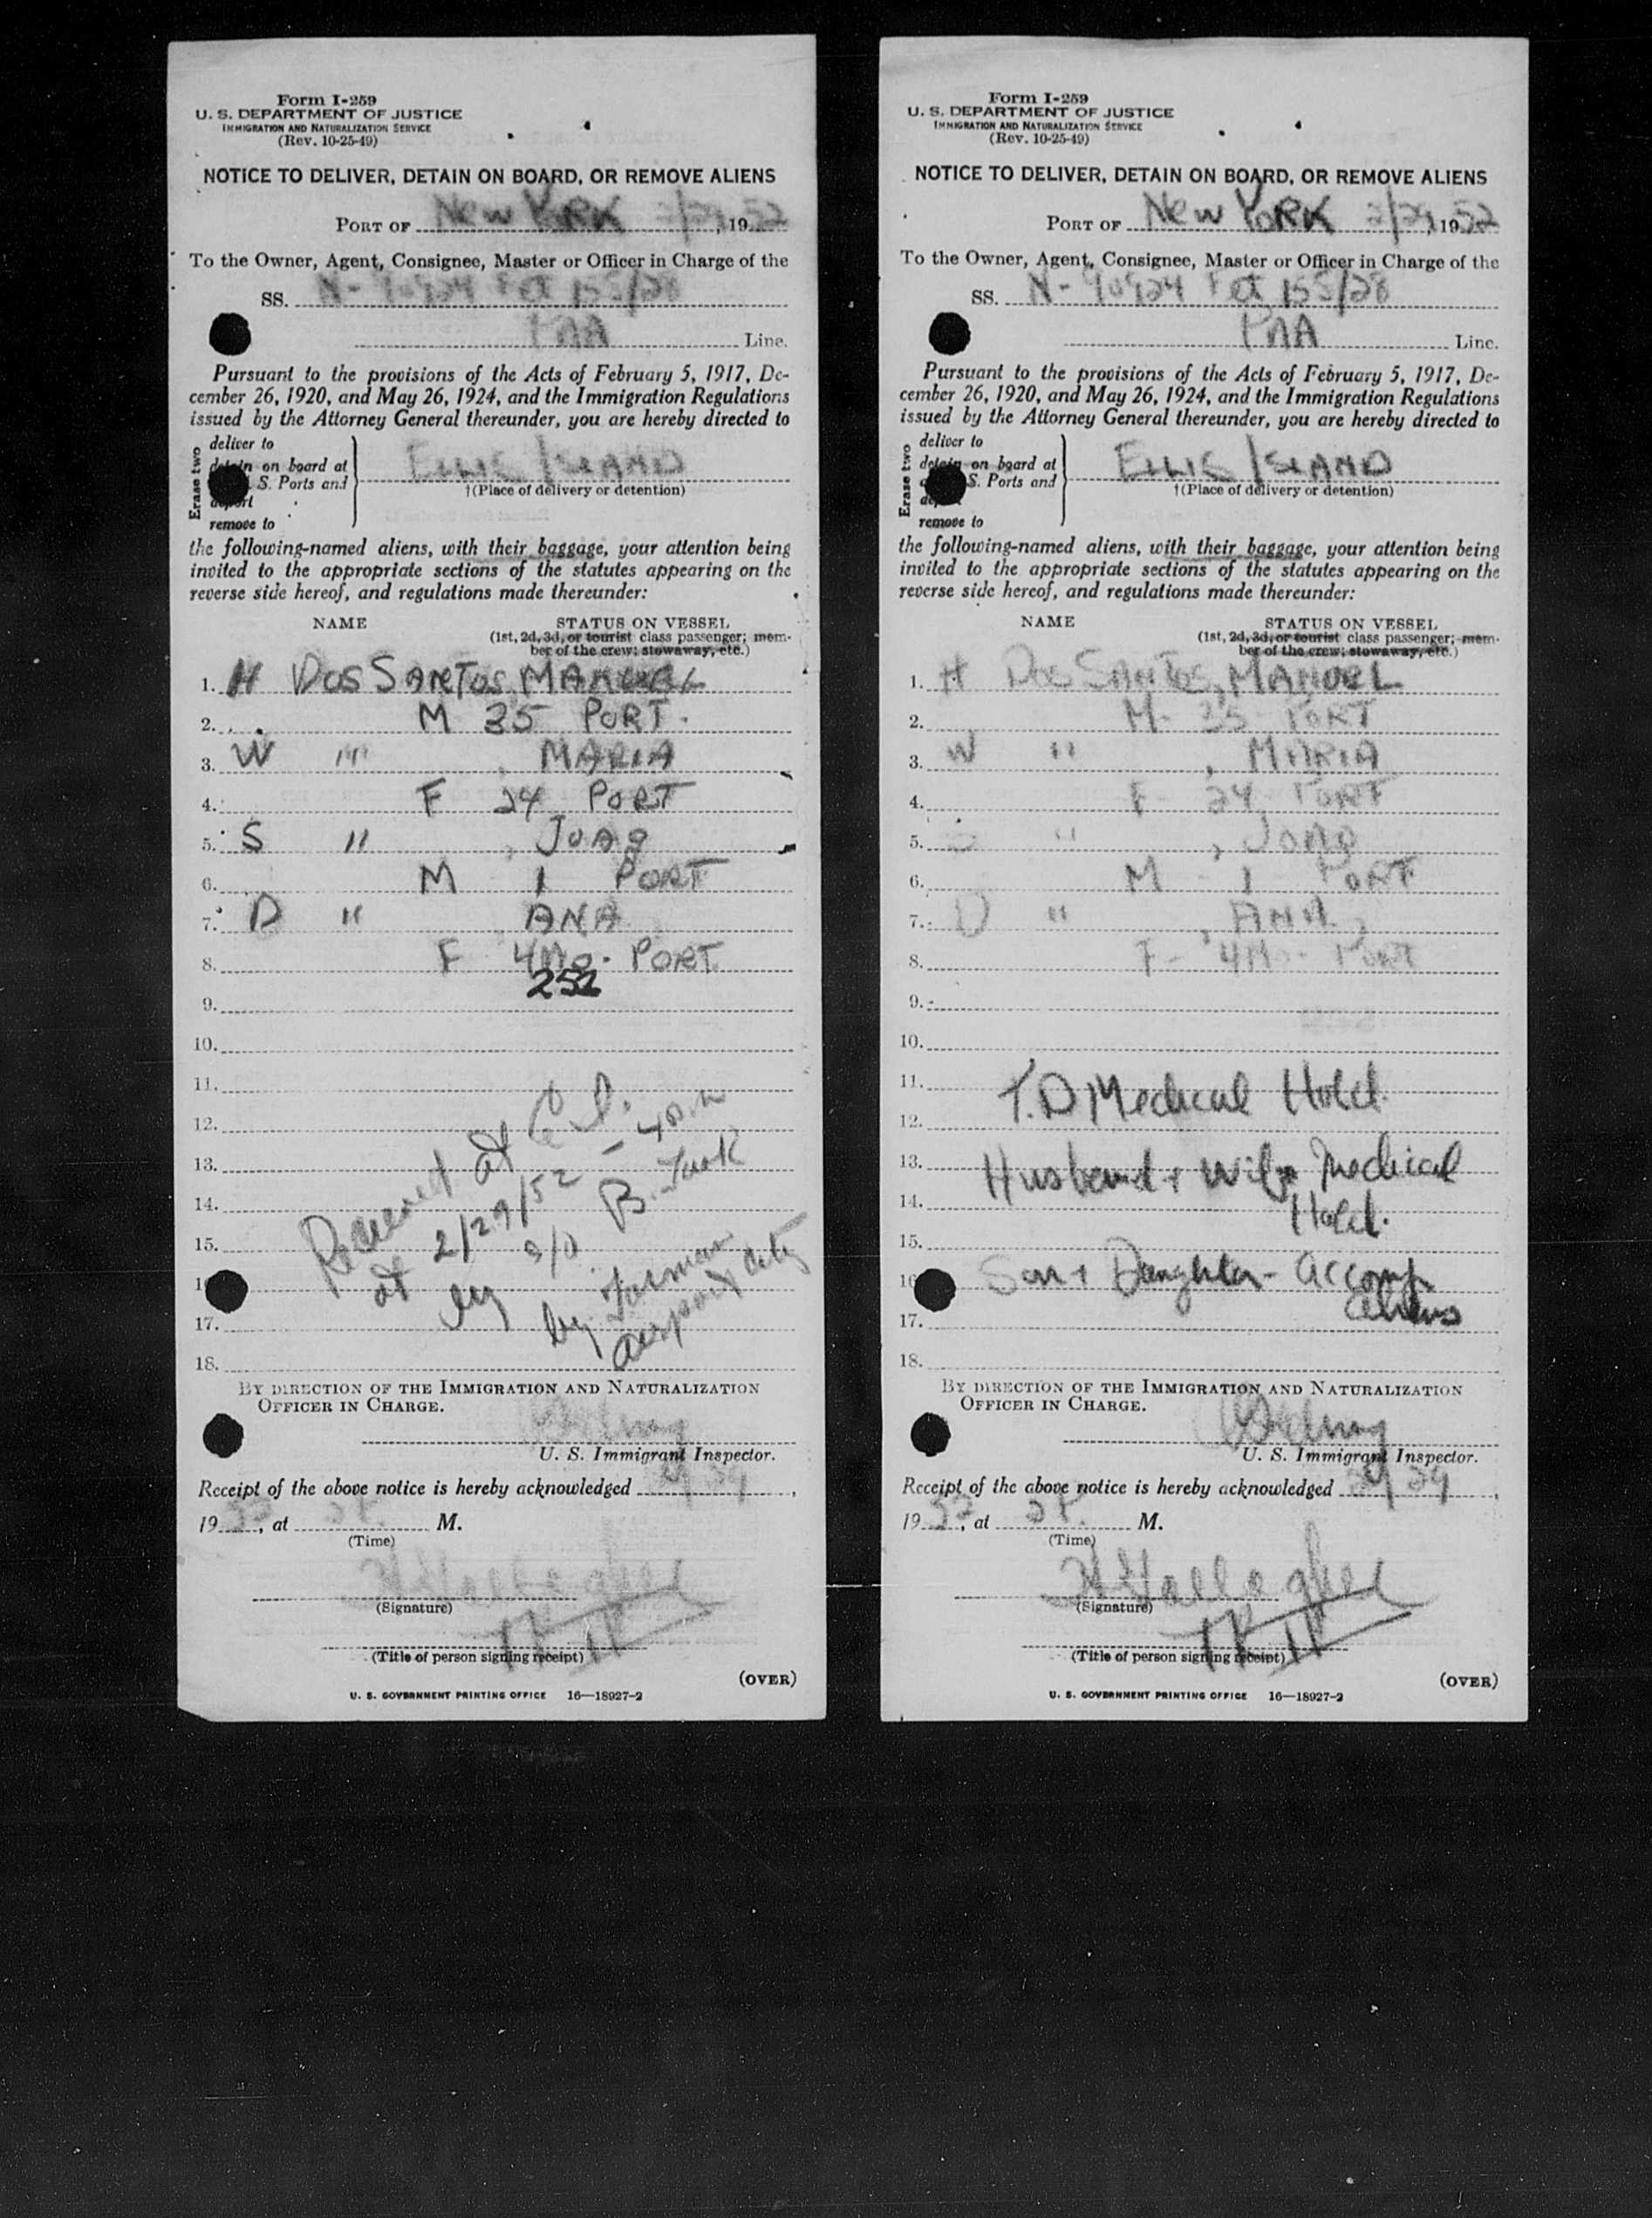 Form I-259
U. S. DEPARTMENT OF JUSTICE
IMMIGRATION AND NATURALIZATION SERVICE
(Rev. 10-25-49)
NOTICE TO DELIVER, DETAIN ON BOARD, OR REMOVE ALIENS
PORT OF New YORK 2/29, 1952
To the Owner, Agent, Consignee, Master or Officer in Charge of the
SS. N-90924 155/28
PAA Line.
Pursuant to the provisions of the Acts of February 5, 1917, De-
cember 26, 1920, and May 26, 1924, and the Immigration Regulations
issued by the Attorney General thereunder, you are hereby directed to
Erase two
deliver to
detain on board at
S. Ports and
deport
remove to
ELLIS ISLAND
†(Place of delivery or detention)
the following-named aliens, with their baggage, your attention being
invited to the appropriate sections of the statutes appearing on the
reverse side hereof, and regulations made thereunder:
NAME STATUS ON VESSEL
(1st, 2d, 3d, or tourist class passenger; mem-
ber of the crew; stowaway, etc.)
1. H DOS SANTOS, MANUEL
2. M 35 PORT.
3. W " , MARIA
4. F 24 PORT
5. S " , JOAO
6. M 1 PORT
7. D " , ANA
8. F 4Mo. PORT
252
9.
10.
11.
12.
13.
14.
15.
16
17.
18.
Received at E.I.
at 2/29/52 - 4 P.M
by S/O B.
by
airport
BY DIRECTION OF THE IMMIGRATION AND NATURALIZATION
OFFICER IN CHARGE.
U. S. Immigrant Inspector.
Receipt of the above notice is hereby acknowledged 2/29,
1952, at 2P. M.
(Time)
Gallagher
(Signature)
(Title of person signing receipt)
(OVER)
U. S. GOVERNMENT PRINTING OFFICE 16—18927-2
Form I-259
U. S. DEPARTMENT OF JUSTICE
IMMIGRATION AND NATURALIZATION SERVICE
(Rev. 10-25-49)
NOTICE TO DELIVER, DETAIN ON BOARD, OR REMOVE ALIENS
PORT OF New YORK 2/29, 1952
To the Owner, Agent, Consignee, Master or Officer in Charge of the
SS. N-90924 155/28
PAA Line.
Pursuant to the provisions of the Acts of February 5, 1917, De-
cember 26, 1920, and May 26, 1924, and the Immigration Regulations
issued by the Attorney General thereunder, you are hereby directed to
Erase two
deliver to
detain on board at
S. Ports and
remove to
ELLIS ISLAND
†(Place of delivery or detention)
the following-named aliens, with their baggage, your attention being
invited to the appropriate sections of the statutes appearing on the
reverse side hereof, and regulations made thereunder:
NAME STATUS ON VESSEL
(1st, 2d, 3d, or tourist class passenger; mem-
ber of the crew; stowaway, etc.)
1. H DOS SANTOS, MANUEL
2. M- 35 PORT
3. W " , MARIA
4. F- 24 PORT
5. S " , JOAO
6. M - 1 PORT
7. D " , ANA,
8. F - 4Mo - PORT
9.
10.
11.
12.
T.D Medical Hold.
13.
14.
Husband + Wife Medical
Hold.
15.
16
Son + Daughter - Accomp.
Aliens
17.
18.
BY DIRECTION OF THE IMMIGRATION AND NATURALIZATION
OFFICER IN CHARGE.
U. S. Immigrant Inspector.
Receipt of the above notice is hereby acknowledged 2/29,
1952, at 2P. M.
(Time)
Gallagher
(Signature)
(Title of person signing receipt)
(OVER)
U. S. GOVERNMENT PRINTING OFFICE 16—18927-2